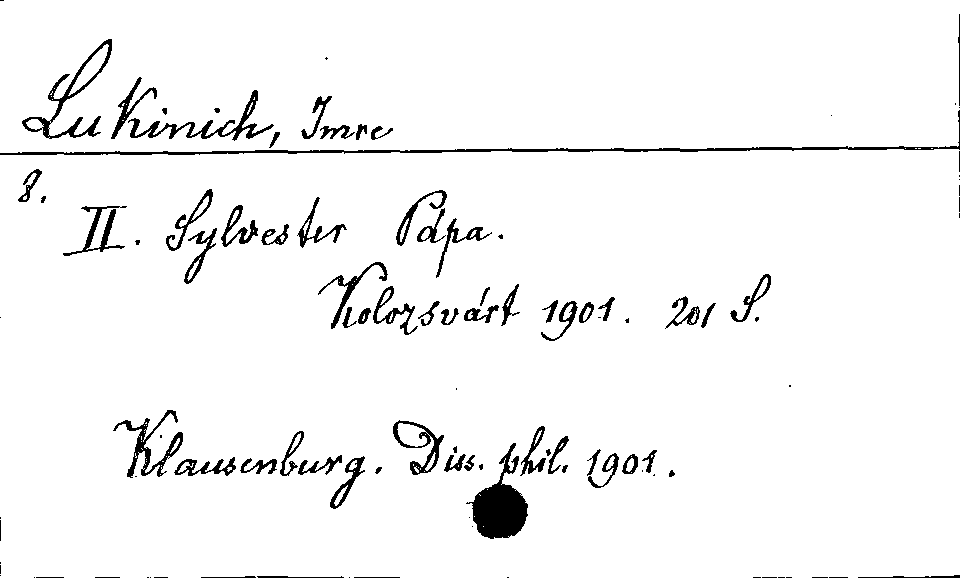 Lukinich, Imre
8.
II. Sylvester Pápa.
Kolozsvárt 1901. 201 S.
Klausenburg. Diss. phil. 1901.